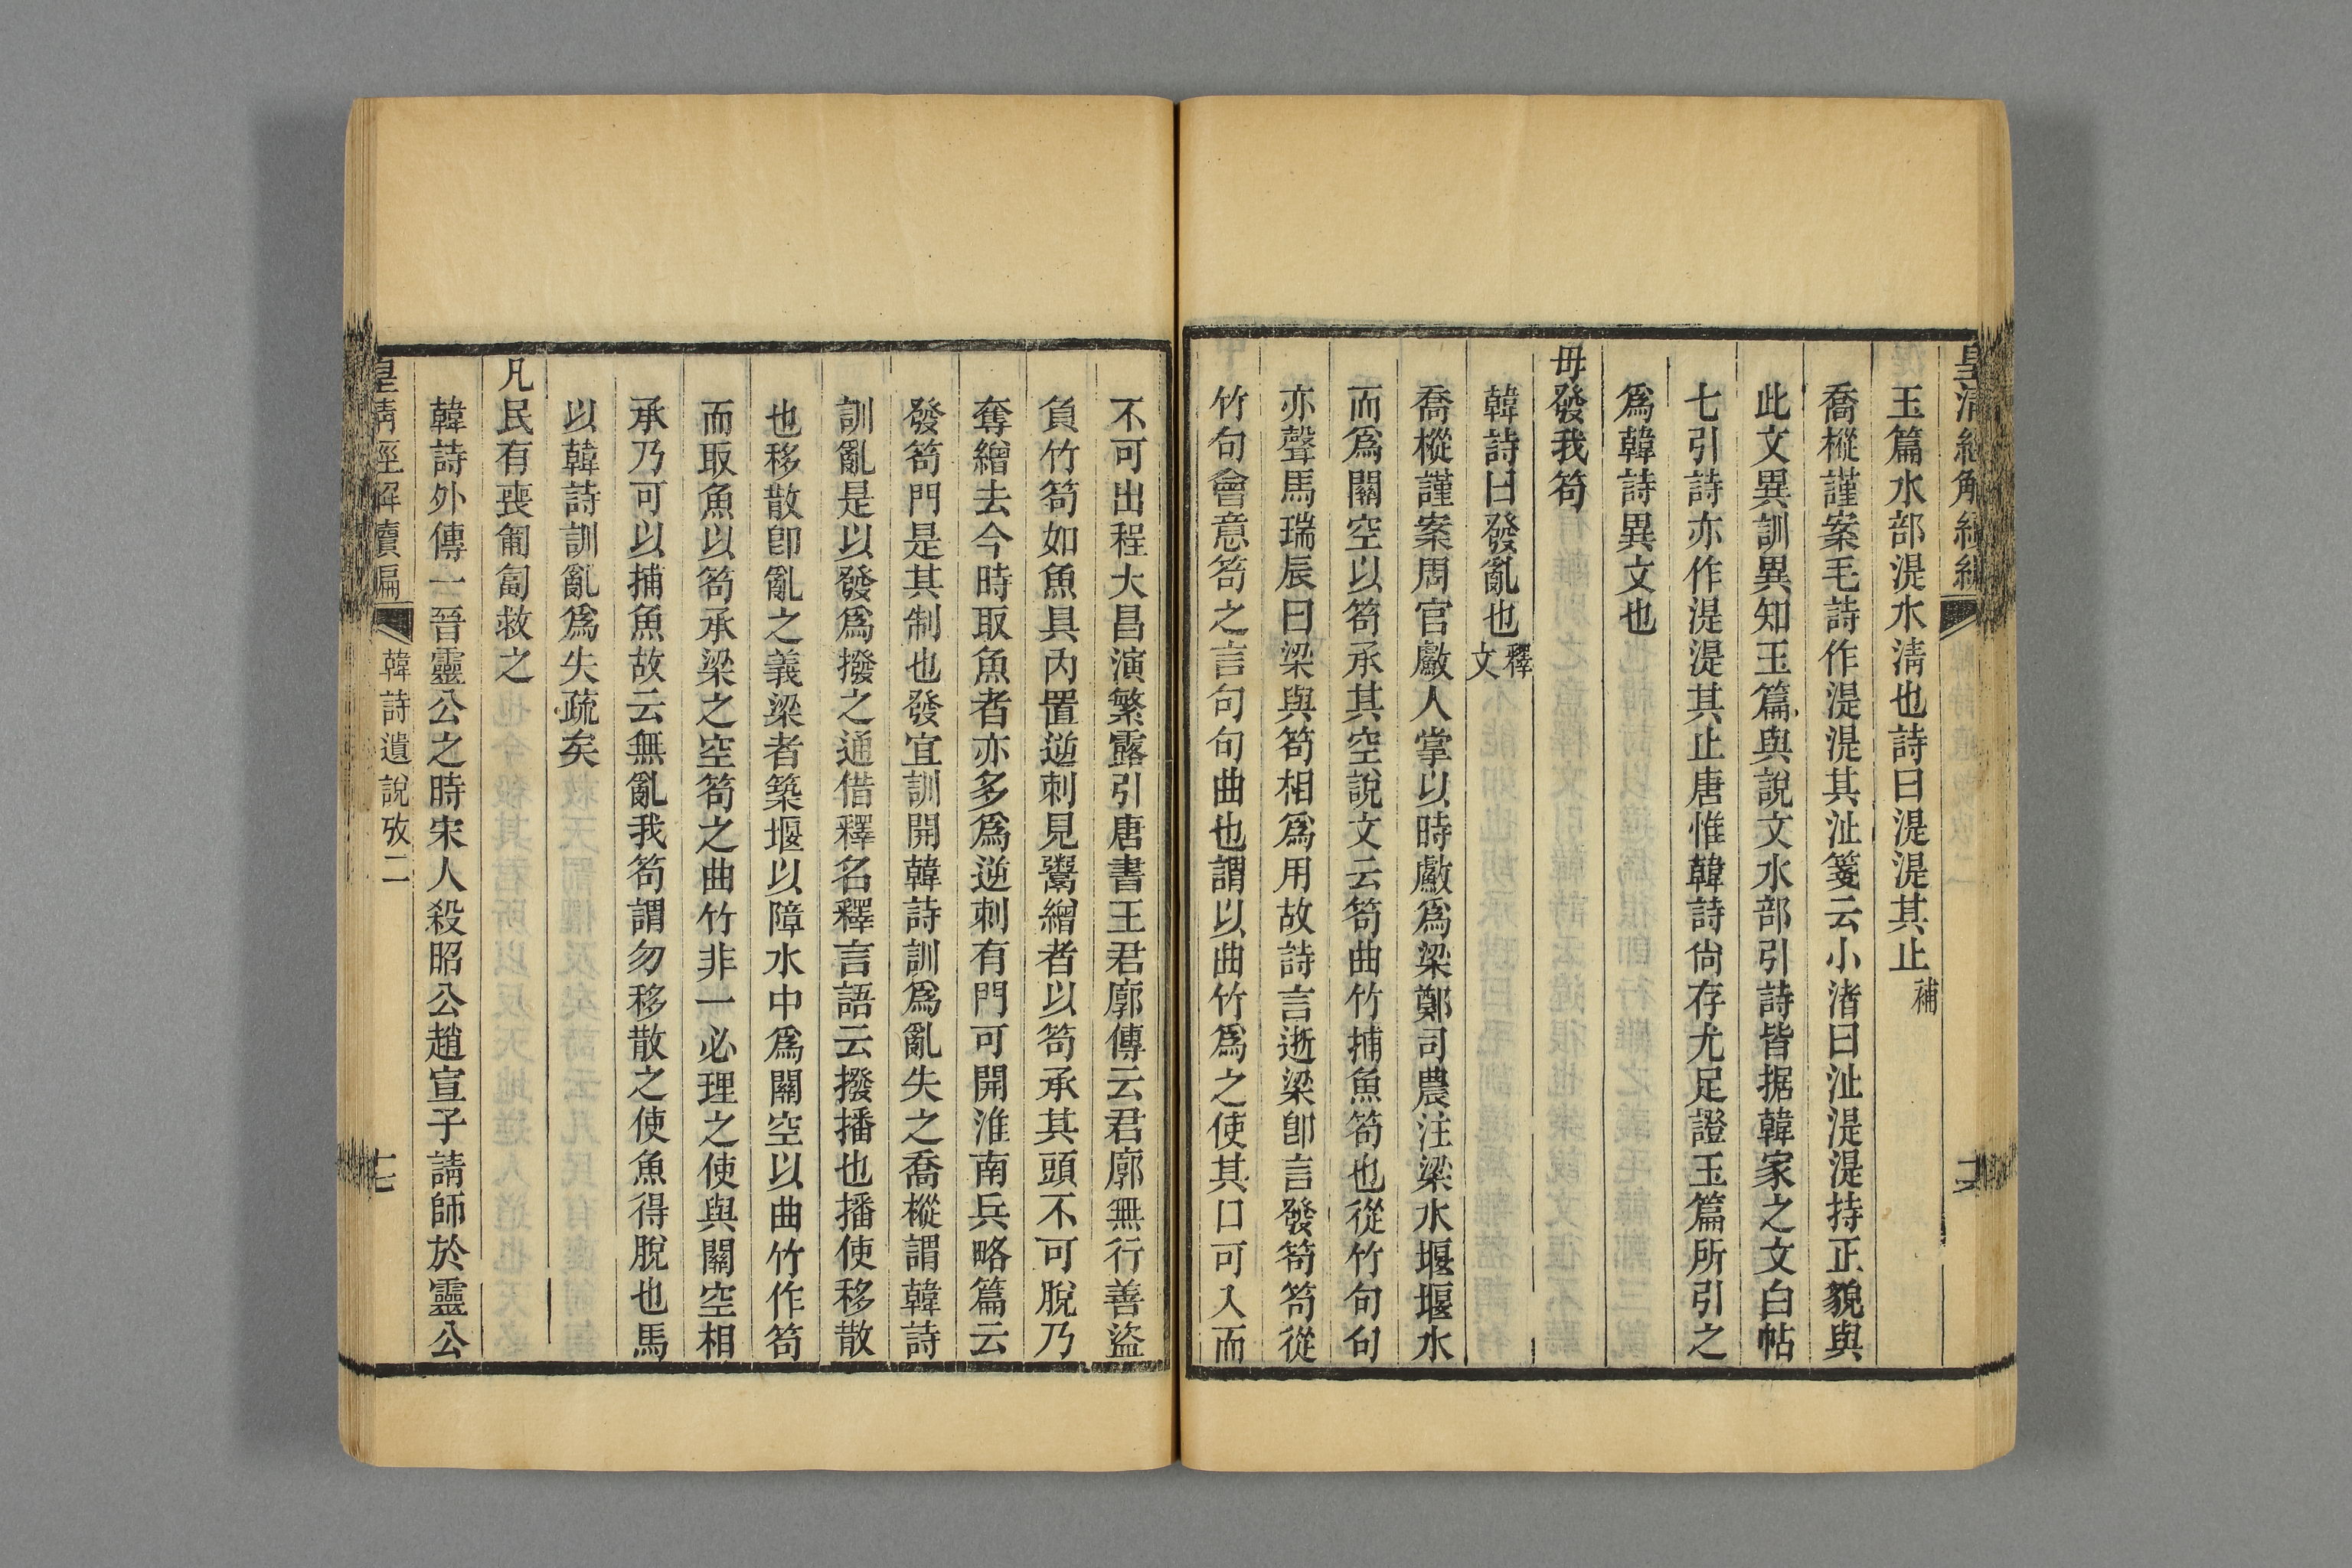 玉篇水部湜水淸也詩曰湜湜其止補
喬樅謹案毛詩作湜湜其沚箋云小渚曰沚湜湜持正貌與
此文異訓異知玉篇與說文水部引詩皆据韓家之文白帖
七引詩亦作湜湜其止唐惟韓詩尙存尤足證玉篇所引之
爲韓詩異文也
毋發我笱
韓詩曰發亂也釋文
喬樅謹案周官䱷人掌以時䱷爲梁鄭司農注梁水堰堰水
而爲關空以笱承其空說文云笱曲竹捕魚笱也從竹句句
亦聲馬瑞辰曰梁與笱相爲用故詩言逝梁卽言發笱笱從
竹句會意笱之言句句曲也謂以曲竹爲之使其口可入而
不可出程大昌演繁露引唐書王君廓傳云君廓無行善盜
負竹笱如魚具內置逆刺見鬻繒者以笱承其頭不可脫乃
奪繒去今時取魚者亦多爲逆刺有門可開淮南兵略篇云
發笱門是其制也發宜訓開韓詩訓爲亂失之喬樅謂韓詩
訓亂是以發爲撥之通借釋名釋言語云撥播也播使移散
也移散卽亂之義梁者築堰以障水中爲關空以曲竹作笱
而取魚以笱承梁之空笱之曲竹非一必理之使與關空相
承乃可以捕魚故云無亂我笱謂勿移散之使魚得脫也馬
以韓詩訓亂爲失疏矣
凡民有喪匍匐救之
韓詩外傳一晉靈公之時宋人殺昭公趙宣子請師於靈公
皇淸經解續編 韓詩遺說攷二 七